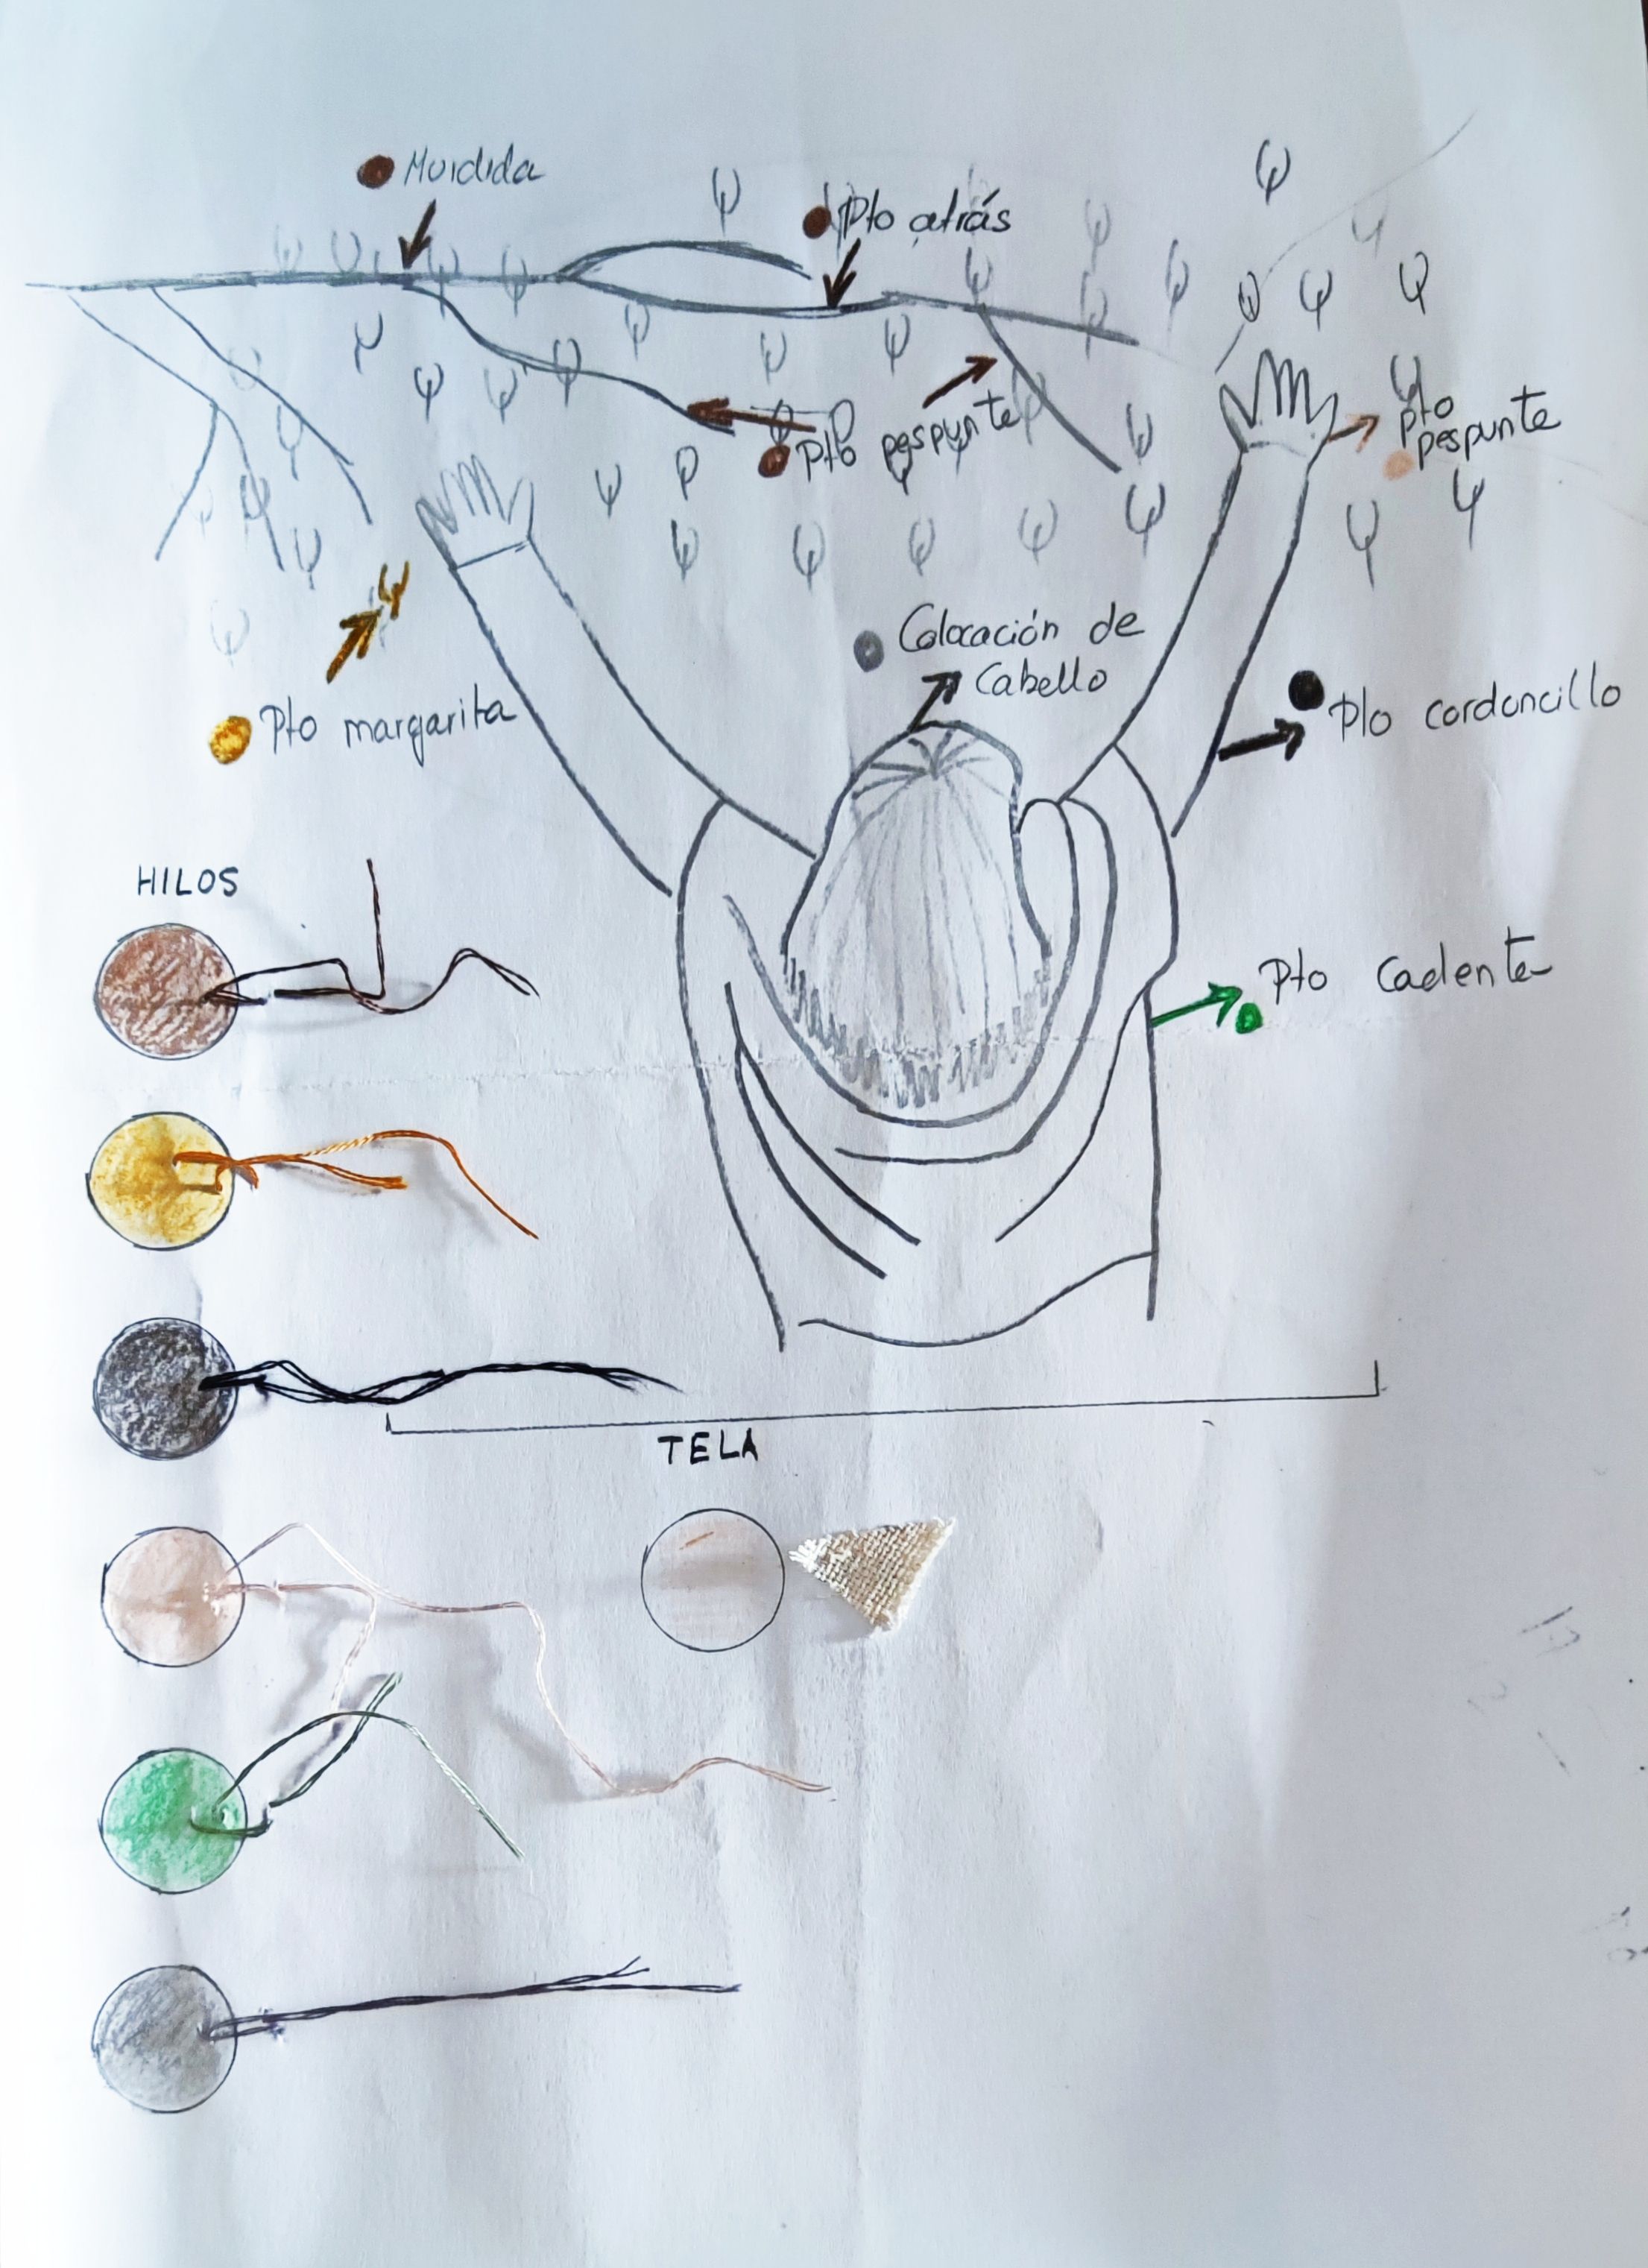 Mordida
Pto atrás
Pto pespunte
Pto
pespunte
Colocación de
Cabello
Pto cordoncillo
Pto margarita
HILOS
Pto Cadenta
TELA